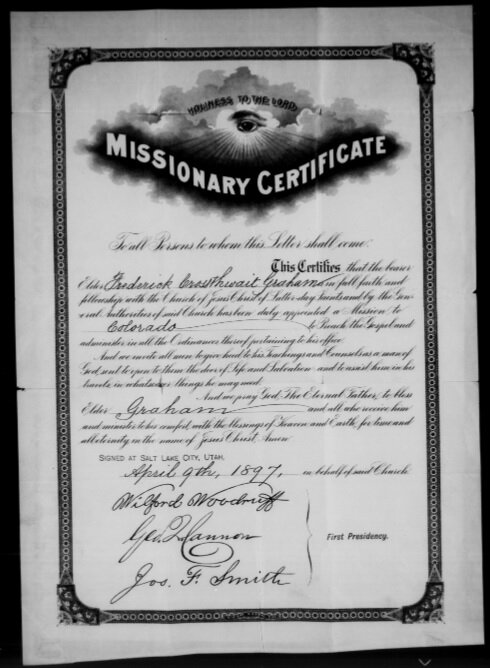 HOLINESS TO THE LORD
MISSIONARY CERTIFICATE
To all Persons to whom this Letter shall come:
This Certifies that the bearer
Elder Frederick Crosthwait Graham is in full faith and
fellowship with the Church of Jesus Christ of Latter-day Saints and by the Gen-
eral Authorities of said Church has been duly appointed a Mission to
Colorado to Preach the Gospel and
administer in all the Ordinances thereof pertaining to his office.
And we invite all men to give heed to his Teachings and Counsels as a man of
God sent to open to them the door of Life and Salvation and to assist him in his
travels, in whatsoever things he may need.
And we pray God, The Eternal Father, to bless
Elder Graham and all who receive him
and minister to his comfort, with the blessings of Heaven and Earth, for time and
all eternity in the name of Jesus Christ, Amen.
SIGNED AT SALT LAKE CITY, UTAH.
April 9th, 1897, in behalf of said Church.
Wilford Woodruff
Geo. Q. Cannon
First Presidency.
Jos. F. Smith